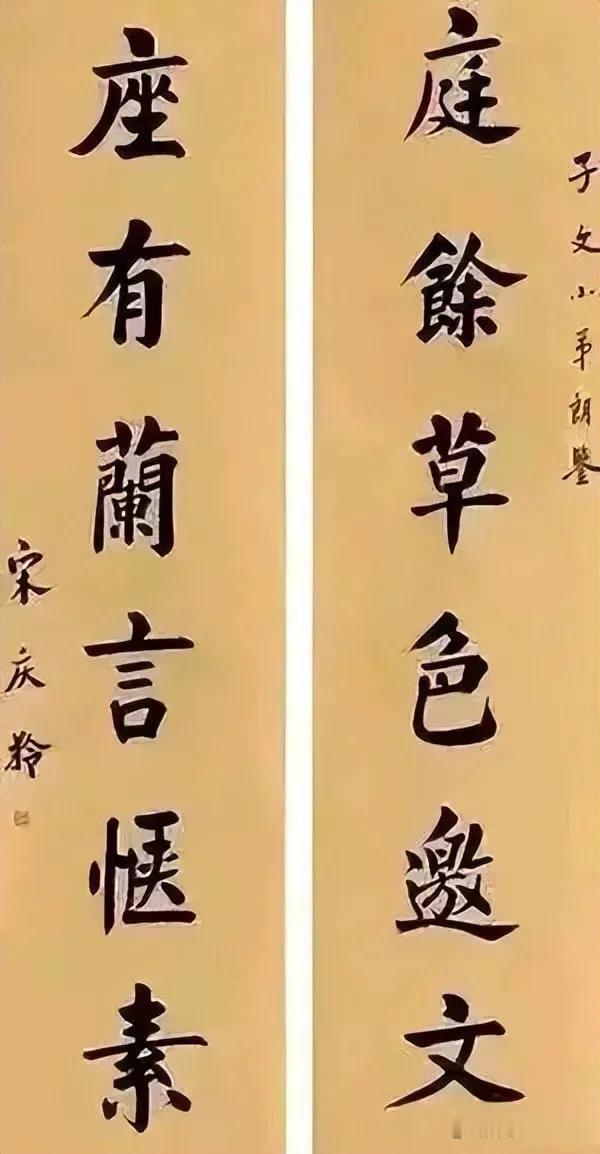 子文小弟朗鑒
庭餘草色邀文
座有蘭言愜素
宋庆龄